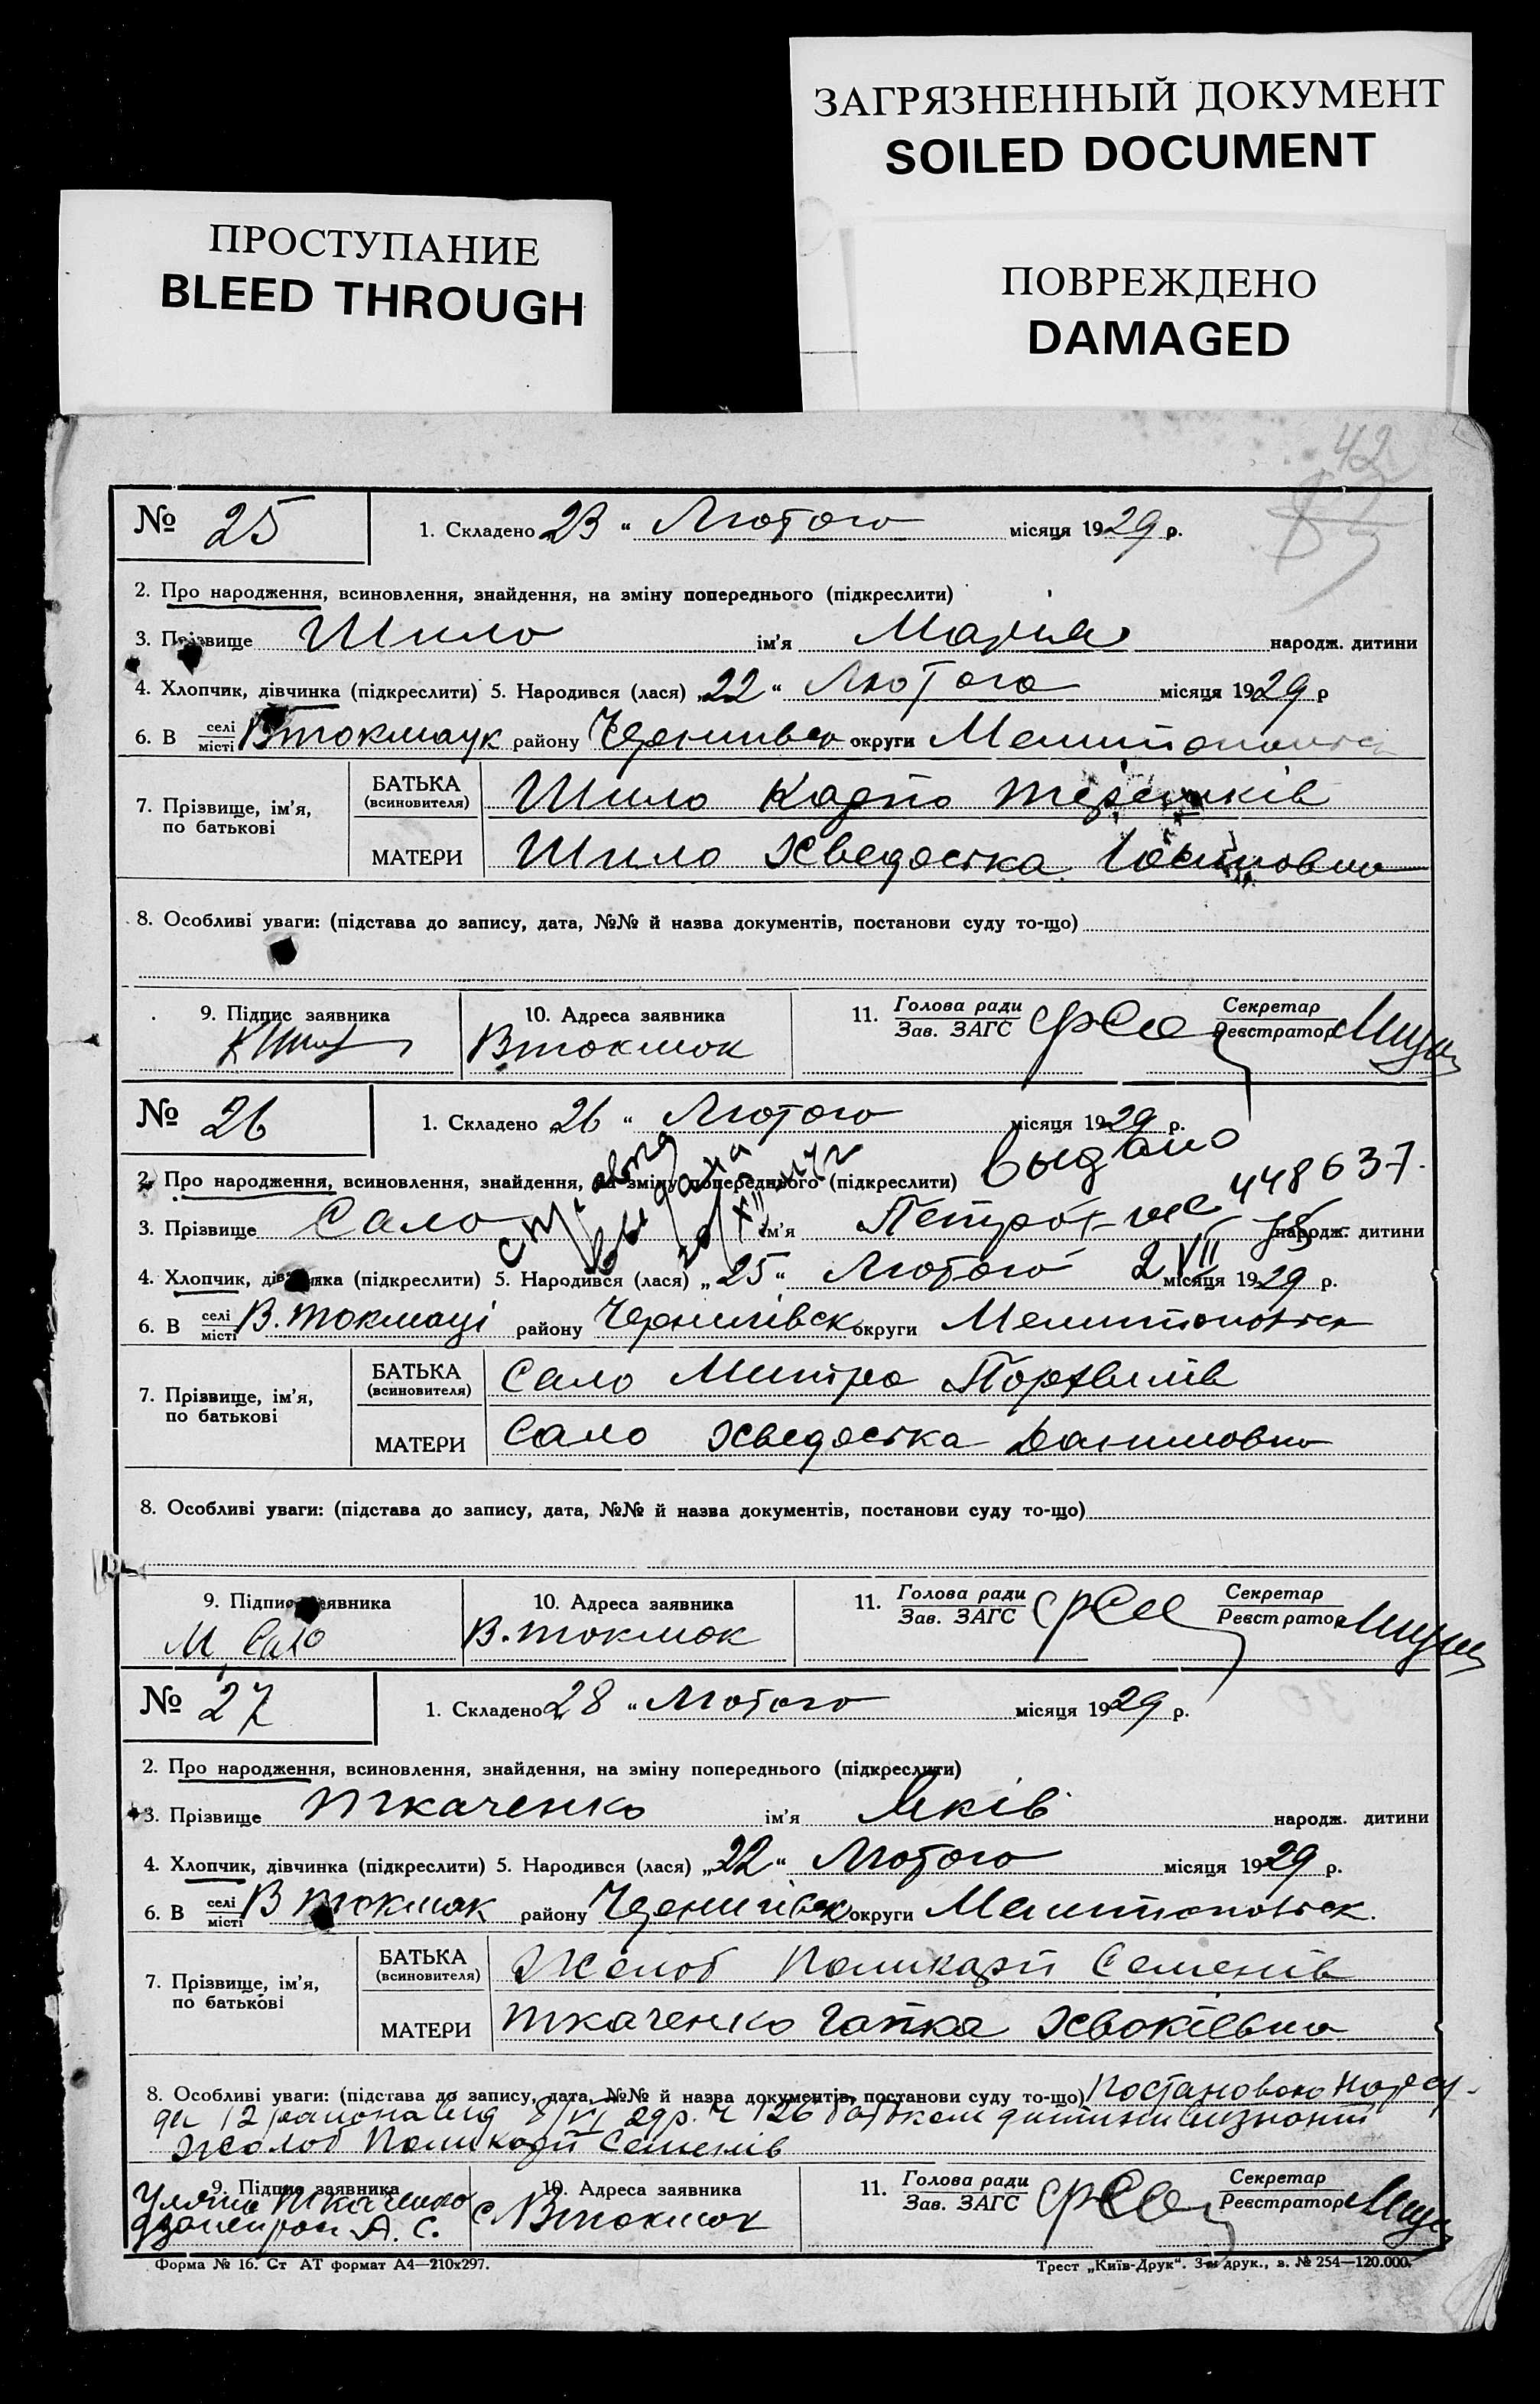 ЗАГРЯЗНЕННЫЙ ДОКУМЕНТ
SOILED DOCUMENT
ПРОСТУПАНИЕ
BLEED THROUGH
ПОВРЕЖДЕНО
DAMAGED
42
№ 25
1. Складено 23 " Лютого місяця 1929 р.
2. Про народження, всиновлення, знайдення, на зміну попереднього (підкреслити)
3. Прізвище Шило ім'я Марія народж. дитини
4. Хлопчик, дівчинка (підкреслити) 5. Народився (лася) „22" Лютого місяця 1929 р
6. В селі місті Втокмаук району округи
7. Прізвище, ім'я, по батькові
БАТЬКА (всиновителя) Шило Карпо
МАТЕРИ Шило Хведоська
8. Особливі уваги: (підстава до запису, дата, №№ й назва документів, постанови суду то-що)
9. Підпис заявника
10. Адреса заявника
11. Голова ради Зав. ЗАГС
Секретар Реєстратор
Втокмок
№ 26
1. Складено 26 " Лютого місяця 1929 р.
2. Про народження, всиновлення, знайдення, на зміну попереднього (підкреслити)
выдано
448637
3. Прізвище Сало ім'я Петро народж. дитини
4. Хлопчик, дівчинка (підкреслити) 5. Народився (лася) „25" Лютого 2 VII місяця 1929 р.
6. В селі місті В. Токмаці району Чернигівск округи Мелитопольск
7. Прізвище, ім'я, по батькові
БАТЬКА (всиновителя) Сало Митро
МАТЕРИ Сало Хведоська Даниловна
8. Особливі уваги: (підстава до запису, дата, №№ й назва документів, постанови суду то-що)
9. Підпис заявника
10. Адреса заявника
11. Голова ради Зав. ЗАГС
Секретар Реєстратор
М Сало
В. Токмок
№ 27
1. Складено 28 " Лютого місяця 1929 р.
2. Про народження, всиновлення, знайдення, на зміну попереднього (підкреслити)
3. Прізвище Ткаченко ім'я Яків народж. дитини
4. Хлопчик, дівчинка (підкреслити) 5. Народився (лася) „22" Лютого місяця 1929 р.
6. В селі місті В Токмак району Чернигівск округи Мелитопольск.
7. Прізвище, ім'я, по батькові
БАТЬКА (всиновителя) Жолоб Поликарп Семенів
МАТЕРИ Ткаченко Гапка
8. Особливі уваги: (підстава до запису, дата, №№ й назва документів, постанови суду то-що) Постановою Нарсу-
да 12 района від 8/VI 29р. ч 126 батьком дитини визнаний
Жолоб Поликарп Семенів
9. Підпис заявника
10. Адреса заявника
11. Голова ради Зав. ЗАГС
Секретар Реєстратор
Уляна Ткаченко
А. С.
с. Втокмок
Форма № 16. Ст АТ формат А4—210х297.
Трест „Київ-Друк". 3-я друк., з. № 254—120.000.